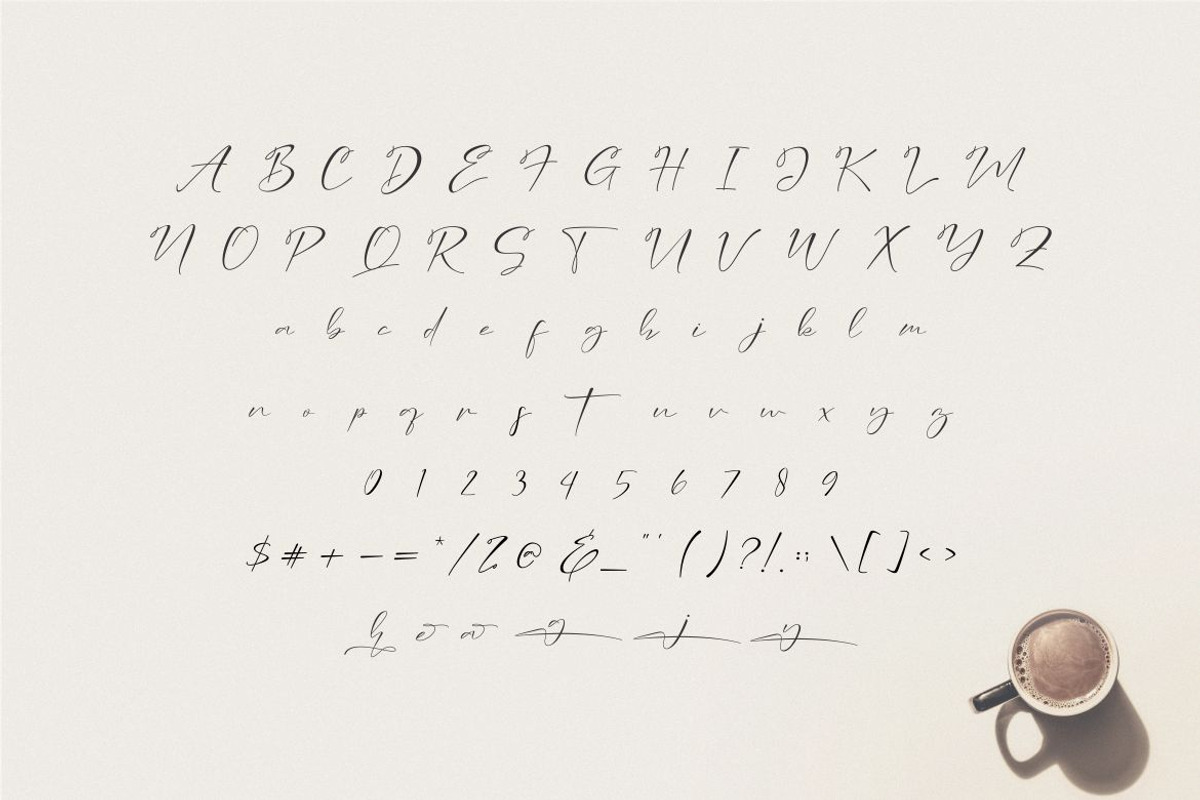 A B C D E F G H I J K L M
N O P Q R S T U V W X Y Z
a b c d e f g h i j k l m
n o p q r s t u v w x y z
0 1 2 3 4 5 6 7 8 9
$ # + - = * / % @ & _ " ' ( ) ? ! . : ; \ [ ] < >
g j y